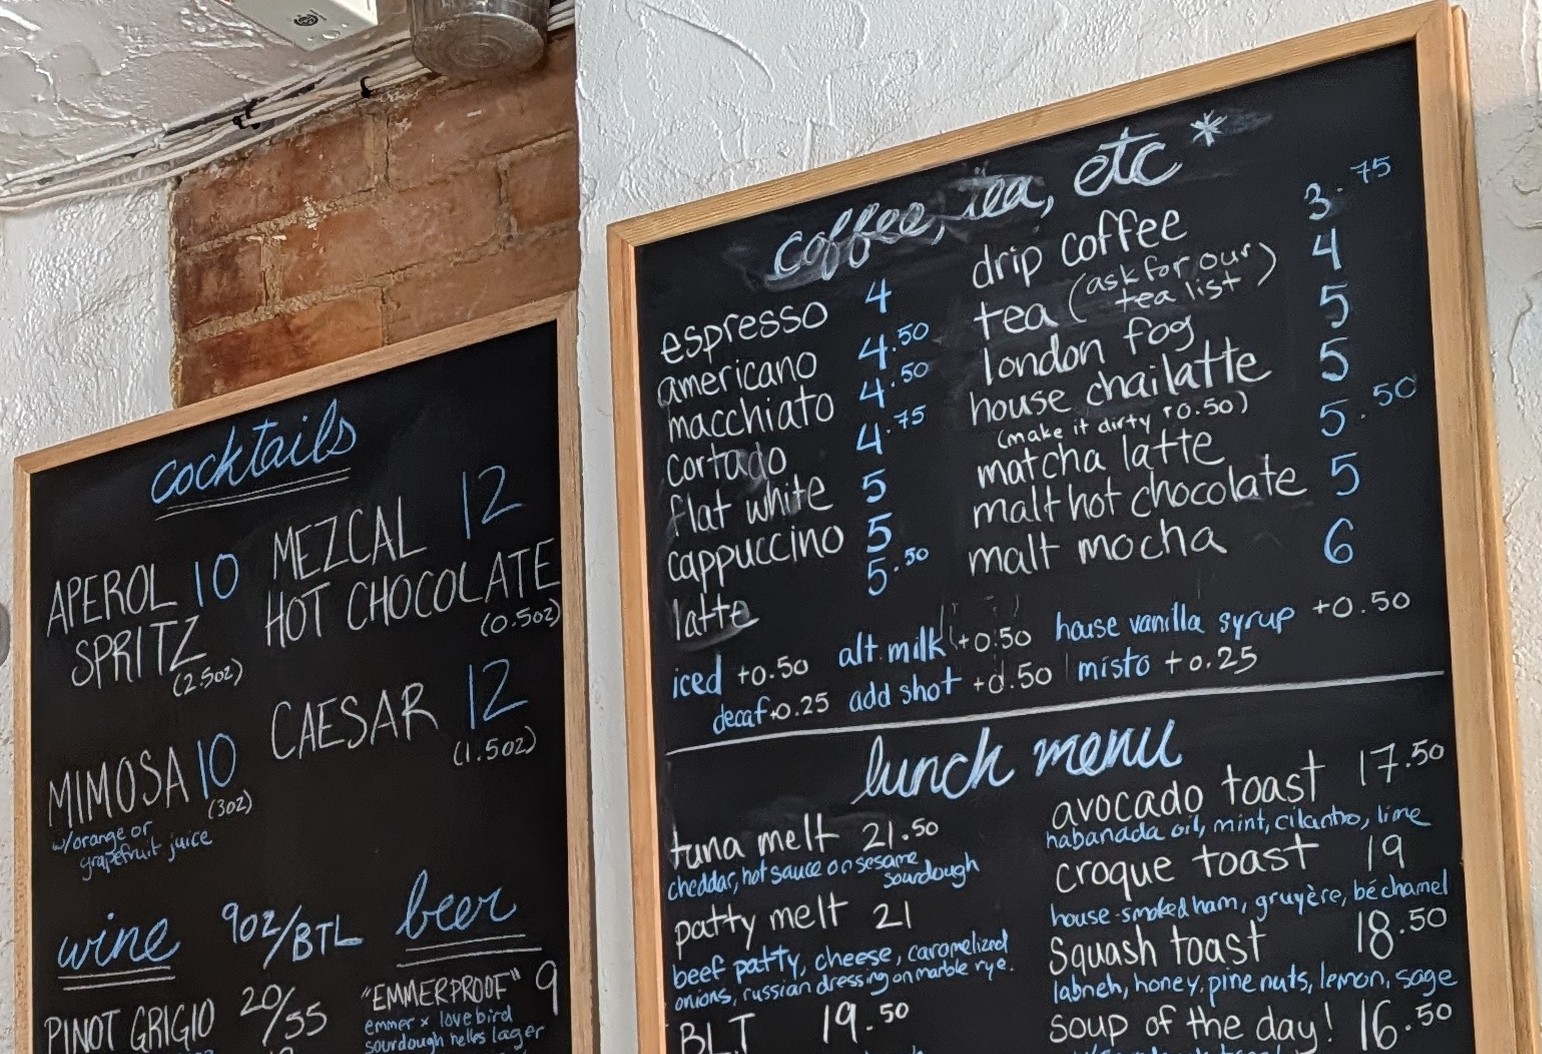 cocktails
APEROL 10
SPRITZ
(2.5oz)
MEZCAL 12
HOT CHOCOLATE
(0.5oz)
MIMOSA 10
(3oz)
w/orange or
grapefruit juice
CAESAR 12
(1.5oz)
wine 9oz/BTL
PINOT GRIGIO 20/55
beer
"EMMERPROOF" 9
emmer x lovebird
sourdough helles lager
coffee, tea, etc *
espresso 4
americano 4.50
macchiato 4.50
cortado 4.75
flat white 5
cappuccino 5
latte 5.50
drip coffee 3.75
tea (ask for our tea list) 4
london fog 5
house chai latte 5
(make it dirty +0.50)
matcha latte 5.50
malt hot chocolate 5
malt mocha 6
iced +0.50 alt milk +0.50 house vanilla syrup +0.50
decaf +0.25 add shot +0.50 misto +0.25
lunch menu
tuna melt 21.50
cheddar, hot sauce on sesame
sourdough
patty melt 21
beef patty, cheese, caramelized
onions, russian dressing on marble rye.
BLT 19.50
avocado toast 17.50
habanada oil, mint, cilantro, lime
croque toast 19
house-smoked ham, gruyère, béchamel
squash toast 18.50
labneh, honey, pine nuts, lemon, sage
soup of the day! 16.50